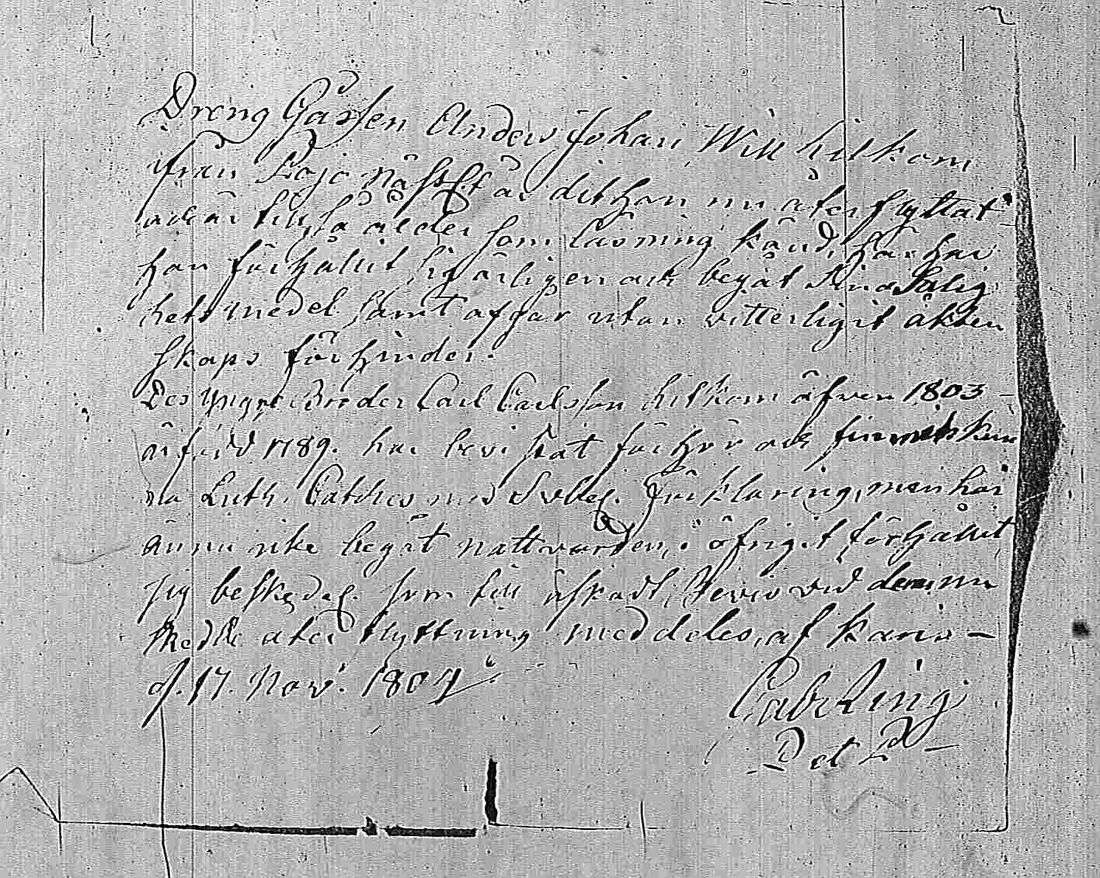 Dreng Gåssen Anders Johan Will hitkom
ifrån Pojo näst år dit han nu åter flyttat
är till så ålder som läsning känd, här har
han förhållit sig ärligen ock begåt sina Salig
hets medel samt afgår utan vitterligit äkten
skaps förhinder.
Des yngre Broder Carl Carlsson hitkom äfven 1803 –
är född 1789. har bevistat förhör ock
na Luth. Catches med Svebel. Förklaring, men har
ännu icke begåt nattvarden, i öfrigit förhållit
sig beskedel. som till äskadt Bevis vid denna
skedde åter flyttning meddeles, af Karis –
d. 17. Nov. 1804
Det P –